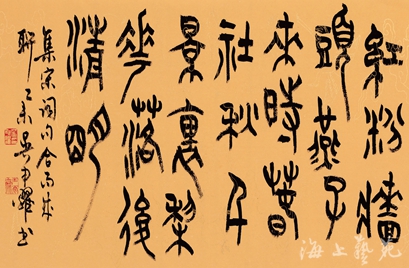 紅粉牆
頭燕子
來時春
社秋千
景裏梨
華落後
清明
集宋詞句合而成
聯乙未吳申耀書
海上藝苑